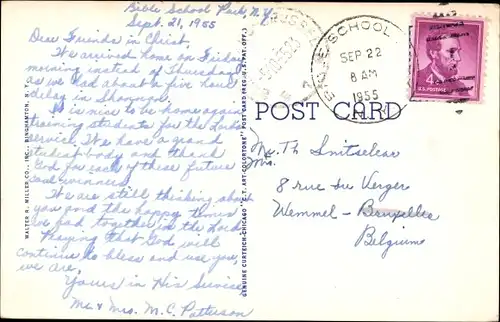 Bible School Park, N.Y.
Sept. 21, 1955
Dear Friends in Christ,
We arrived home on Friday
morning instead of Thursday
as we had about a five hour
delay in Shannon.
It is nice to be home again
training students for the Lord's
service. We have a grand
student body and thank
God for each of these future
soul winners.
We are still thinking about
you and the happy times
we had together in the Lord.
Praying that God will
continue to bless and use you,
we are,
Yours in His Service,
Mr. & Mrs. M.C. Patterson
WALTER R. MILLER CO., INC., BINGHAMTON, N. Y.
GENUINE CURTEICH-CHICAGO "C.T. ART-COLORTONE" POST CARD (REG. U.S. PAT. OFF.)
BIBLE SCHOOL
SEP 22
8 AM
1955
4¢
U.S. POSTAGE
POST CARD
Mr. Th Snitselaar
Mrs.
8 rue du Verger
Wemmel - Bruxelles
Belgium